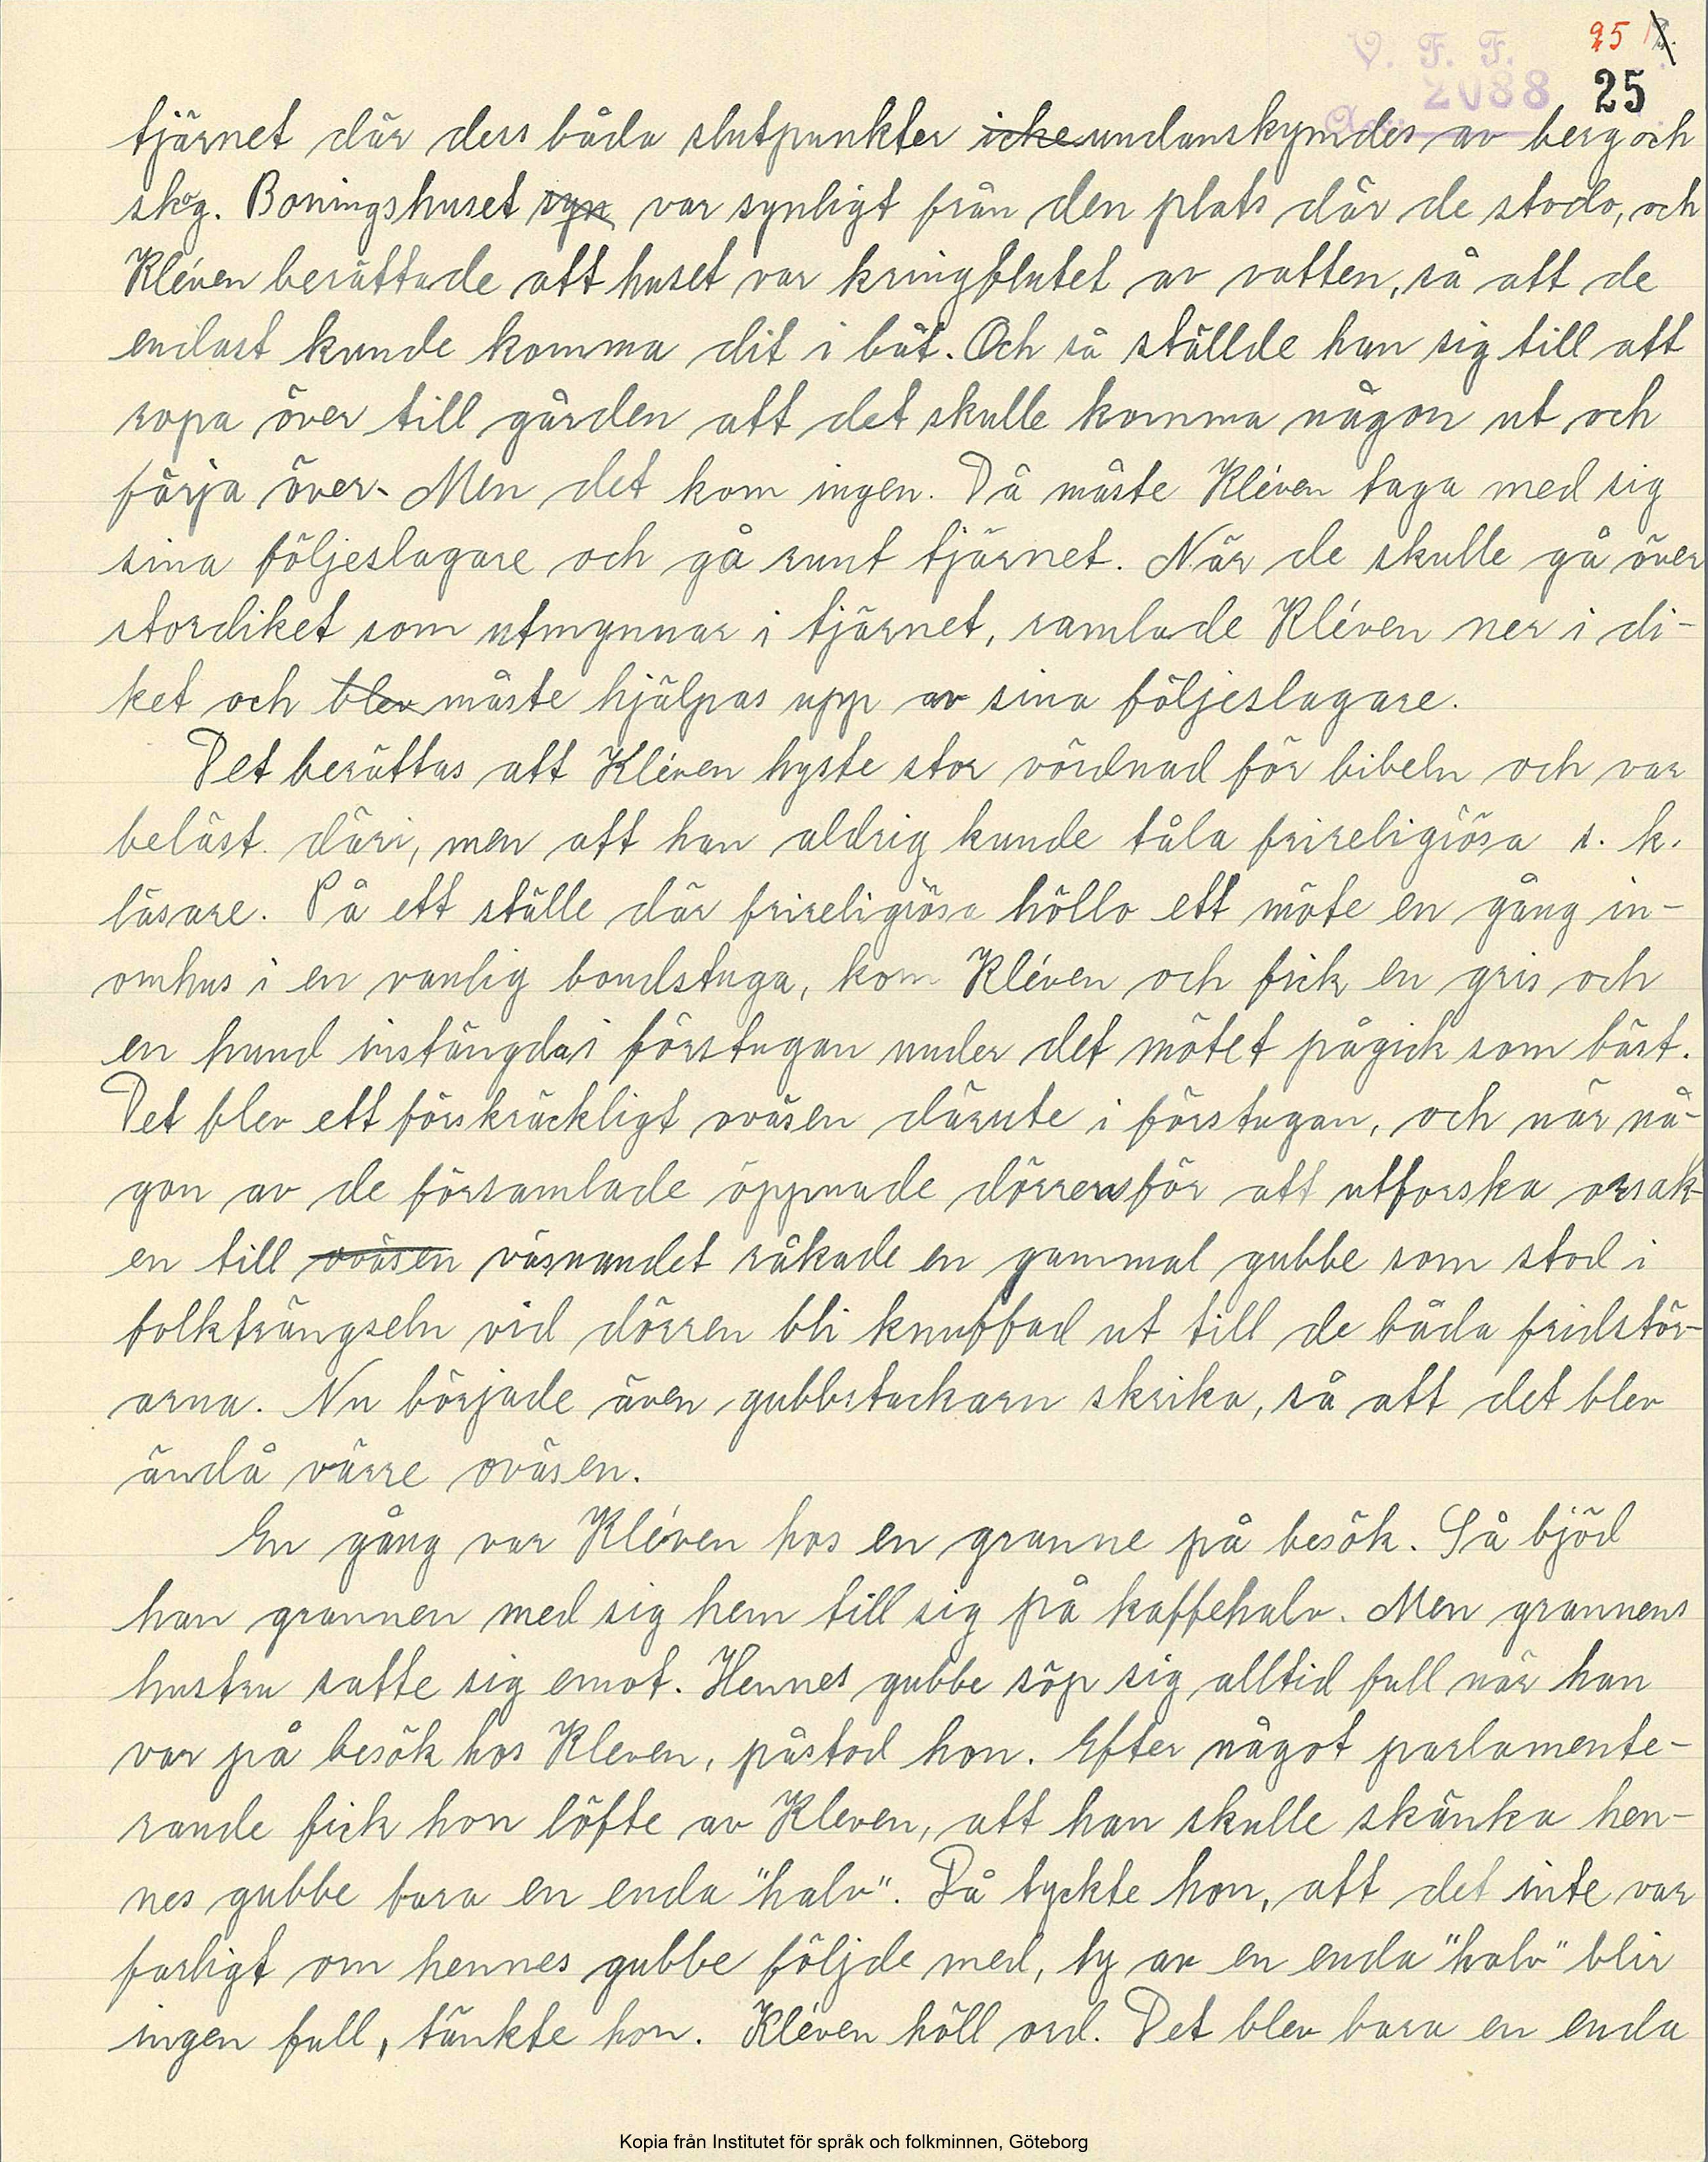 25
V. F. F.
2088 25
tjärnet där dess båda slutpunkter icke undanskymdes av berg och
skog. Boningshuset syn var synligt från den plats där de stodo, och
Kléven berättade att huset var kringflutet av vatten, så att de
endast kunde komma dit i båt. Och så ställde han sig till att
ropa över till gården att det skulle komma någon ut och
färja över. Men det kom ingen. Då måste Kléven taga med sig
sina följeslagare och gå runt tjärnet. När de skulle gå över
stordiket som utmynnar i tjärnet, ramlade Kléven ner i di-
ket och blev måste hjälpas upp av sina följeslagare.
Det berättas att Kléven hyste stor vördnad för bibeln och var
beläst däri, men att han aldrig kunde tåla frireligiösa s. k.
läsare. På ett ställe där frireligiösa höllo ett möte en gång in-
omhus i en vanlig bondstuga, kom Kléven och fick en gris och
en hund instängda i förstugan under det mötet pågick som bäst.
Det blev ett förskräckligt oväsen därute i förstugan, och när nå-
gon av de församlade öppnade dörren för att utforska orsak-
en till oväsen väsnandet råkade en gammal gubbe som stod i
folkträngseln vid dörren bli knuffad ut till de båda fridstör-
arna. Nu började även gubbstackarn skrika, så att det blev
ändå värre oväsen.
En gång var Kléven hos en granne på besök. Så bjöd
han grannen med sig hem till sig på kaffehalv. Men grannens
hustru satte sig emot. Hennes gubbe söp sig alltid full när han
var på besök hos Kleven, påstod hon. Efter något parlamente-
rande fick hon löfte av Kleven, att han skulle skänka hen-
nes gubbe bara en enda "halv". Då tyckte hon, att det inte var
farligt om hennes gubbe följde med, ty av en enda "halv" blir
ingen full, tänkte hon. Kléven höll ord. Det blev bara en enda
Kopia från Institutet för språk och folkminnen, Göteborg